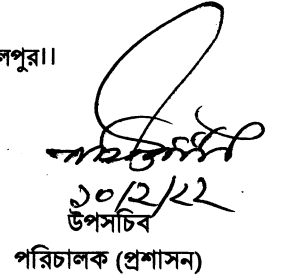 লপুর।।
১০/২/২২
উপসচিব
পরিচালক (প্রশাসন)